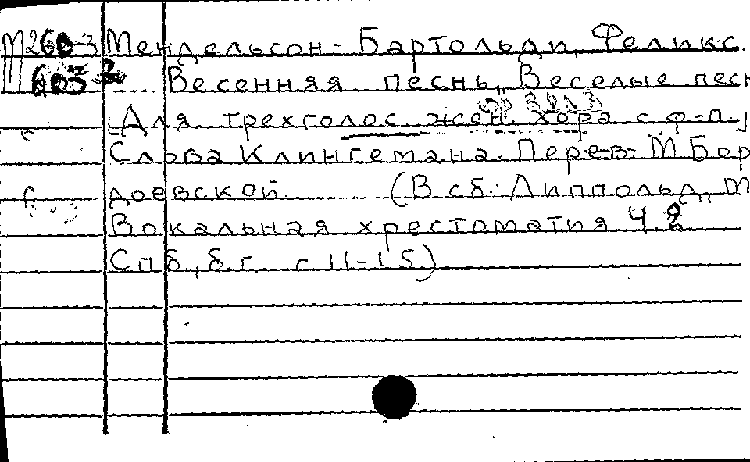 М260-3 Мендельсон-Бартольди, Феликс.
603-2 Весенняя песнь "Веселые песн
Для трехголос. жен. хора с ф-п.
Слова Клингемана. Перев. М. Бор
доевской. (В сб.: Липпольд, М
Вокальная хрестоматия Ч. 2
Спб, б.г. с 11-15)